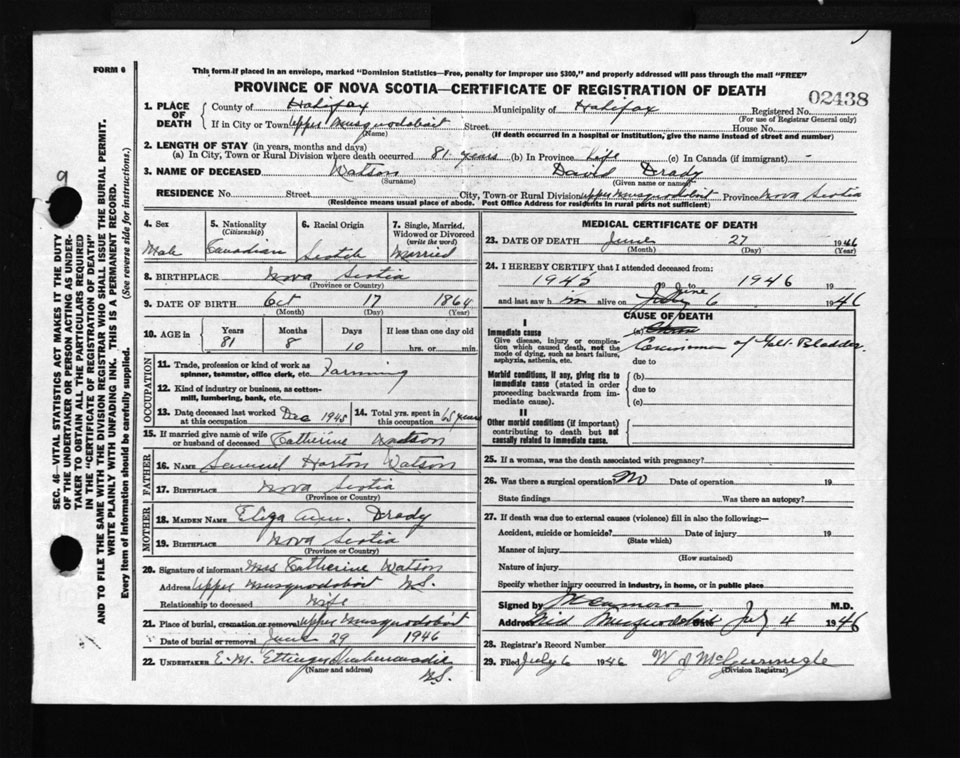 FORM 6
This form if placed in an envelope, marked "Dominion Statistics—Free, penalty for improper use $300," and properly addressed will pass through the mail "FREE"
PROVINCE OF NOVA SCOTIA—CERTIFICATE OF REGISTRATION OF DEATH
02438
1. PLACE OF DEATH
County of Halifax Municipality of Halifax Registered No.
(For use of Registrar General only)
If in City or Town Upper Musquodoboit Street House No.
(Name) (If death occurred in a hospital or institution, give the name instead of street and number)
2. LENGTH OF STAY (in years, months and days)
(a) In City, Town or Rural Division where death occurred 81 years (b) In Province Life (c) In Canada (if immigrant) -
3. NAME OF DECEASED Watson David Drady
(Surname) (Given name or names)
RESIDENCE No. Street City, Town or Rural Division Upper Musquodoboit Province Nova Scotia
(Residence means usual place of abode. Post Office Address for residents in rural parts not sufficient)
4. Sex
Male
5. Nationality
(Citizenship)
Canadian
6. Racial Origin
Scotch
7. Single, Married, Widowed or Divorced
(write the word)
Married
8. BIRTHPLACE Nova Scotia
(Province or Country)
9. DATE OF BIRTH Oct 17 1864
(Month) (Day) (Year)
10. AGE in Years Months Days If less than one day old
81 8 10 hrs. or min.
OCCUPATION
11. Trade, profession or kind of work as spinner, teamster, office clerk, etc. Farming
12. Kind of industry or business, as cotton-mill, lumbering, bank, etc.
13. Date deceased last worked at this occupation Dec 1945
14. Total yrs. spent in this occupation 65 years
15. If married give name of wife or husband of deceased Catherine Watson
FATHER
16. NAME Samuel Horton Watson
17. BIRTHPLACE Nova Scotia
(Province or Country)
MOTHER
18. MAIDEN NAME Eliza Ann Drady
19. BIRTHPLACE Nova Scotia
(Province or Country)
20. Signature of informant Mrs Catherine Watson
Address Upper Musquodoboit N.S.
Relationship to deceased Wife
21. Place of burial, cremation or removal Upper Musquodoboit
Date of burial or removal June 29 1946
22. UNDERTAKER E. M. Ettinger Shubenacadie
(Name and address) N.S.
MEDICAL CERTIFICATE OF DEATH
23. DATE OF DEATH June 27 1946
(Month) (Day) (Year)
24. I HEREBY CERTIFY that I attended deceased from:
1945 19 to 1946 19
and last saw him alive on June 6 1946
CAUSE OF DEATH
I
Immediate cause
Give disease, injury or complication which caused death, not the mode of dying, such as heart failure, asphyxia, asthenia, etc.
(a)
of Gall-Bladder.
due to
Morbid conditions, if any, giving rise to immediate cause (stated in order proceeding backwards from immediate cause).
(b)
due to
(c)
II
Other morbid conditions (if important) contributing to death but not causally related to immediate cause.
25. If a woman, was the death associated with pregnancy?
26. Was there a surgical operation? No Date of operation 19
State findings Was there an autopsy?
27. If death was due to external causes (violence) fill in also the following:—
Accident, suicide or homicide? Date of injury 19
(State which)
Manner of injury
(How sustained)
Nature of injury
Specify whether injury occurred in industry, in home, or in public place
Signed by M.D.
Address Mid Musquodoboit July 4 1946
28. Registrar's Record Number
29. Filed July 6 1946 W J
(Division Registrar)
SEC. 46—VITAL STATISTICS ACT MAKES IT THE DUTY
OF THE UNDERTAKER OR PERSON ACTING AS UNDER-
TAKER TO OBTAIN ALL THE PARTICULARS REQUIRED
IN THE "CERTIFICATE OF REGISTRATION OF DEATH"
AND TO FILE THE SAME WITH THE DIVISION REGISTRAR WHO SHALL ISSUE THE BURIAL PERMIT.
WRITE PLAINLY WITH UNFADING INK. THIS IS A PERMANENT RECORD.
Every item of information should be carefully supplied. (See reverse side for instructions.)
9